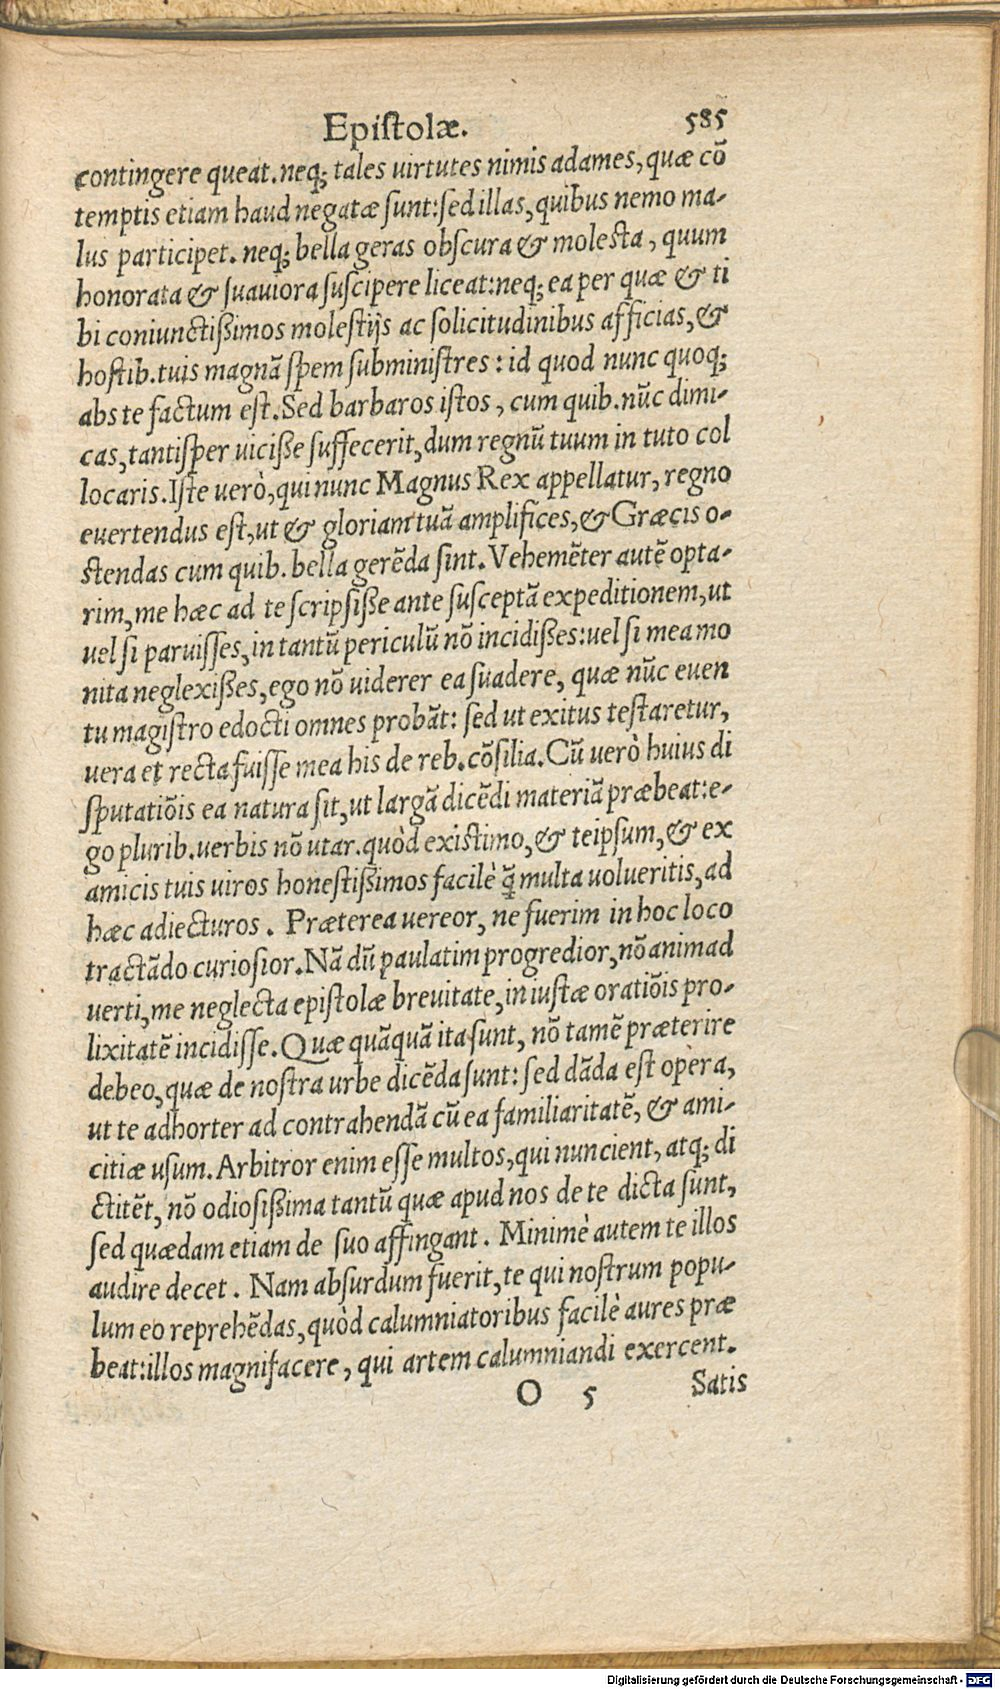 Epistolæ. 585
contingere queat. neq; tales uirtutes nimis adames, quæ cõ
temptis etiam haud negatæ sunt: sed illas, quibus nemo ma-
lus participet. neq; bella geras obscura & molesta, quum
honorata & suauiora suscipere liceat: neq; ea per quæ & ti
bi coniunctißimos molestijs ac solicitudinibus afficias, &
hostib. tuis magnã spem subministres: id quod nunc quoq;
abs te factum est. Sed barbaros istos, cum quib. nũc dimi-
cas, tantisper uiciße suffecerit, dum regnũ tuum in tuto col
locaris. Iste uerò, qui nunc Magnus Rex appellatur, regno
euertendus est, ut & gloriam tuã amplifices, & Græcis o-
stendas cum quib. bella gerẽda sint. Vehemẽter autẽ opta-
rim, me hæc ad te scripsiße ante susceptã expeditionem, ut
uel si paruisses, in tantũ periculũ nõ incidißes: uel si mea mo
nita neglexißes, ego nõ uiderer ea suadere, quæ nũc euen
tu magistro edocti omnes probãt: sed ut exitus testaretur,
uera et recta fuisse mea his de reb. cõsilia. Cũ uerò huius di
sputatiõis ea natura sit, ut largã dicẽdi materiã præbeat: e-
go plurib. uerbis nõ utar. quòd existimo, & teipsum, & ex
amicis tuis uiros honestißimos facilè q̃ multa uolueritis, ad
hæc adiecturos. Præterea uereor, ne fuerim in hoc loco
tractãdo curiosior. Nã dũ paulatim progredior, nõ animad
uerti, me neglecta epistolæ breuitate, in iustæ oratiõis pro-
lixitatẽ incidisse. Quæ quãquã ita sunt, nõ tamẽ præterire
debeo, quæ de nostra urbe dicẽda sunt: sed dãda est opera,
ut te adhorter ad contrahendã cũ ea familiaritatẽ, & ami-
citiæ usum. Arbitror enim esse multos, qui nuncient, atq; di
ctitẽt, nõ odiosißima tantũ quæ apud nos de te dicta sunt,
sed quædam etiam de suo affingant. Minimè autem te illos
audire decet. Nam absurdum fuerit, te qui nostrum popu-
lum eo reprehẽdas, quòd calumniatoribus facilè aures præ
beat: illos magnifacere, qui artem calumniandi exercent.
O 5 Satis
Digitalisierung gefördert durch die Deutsche Forschungsgemeinschaft - DFG